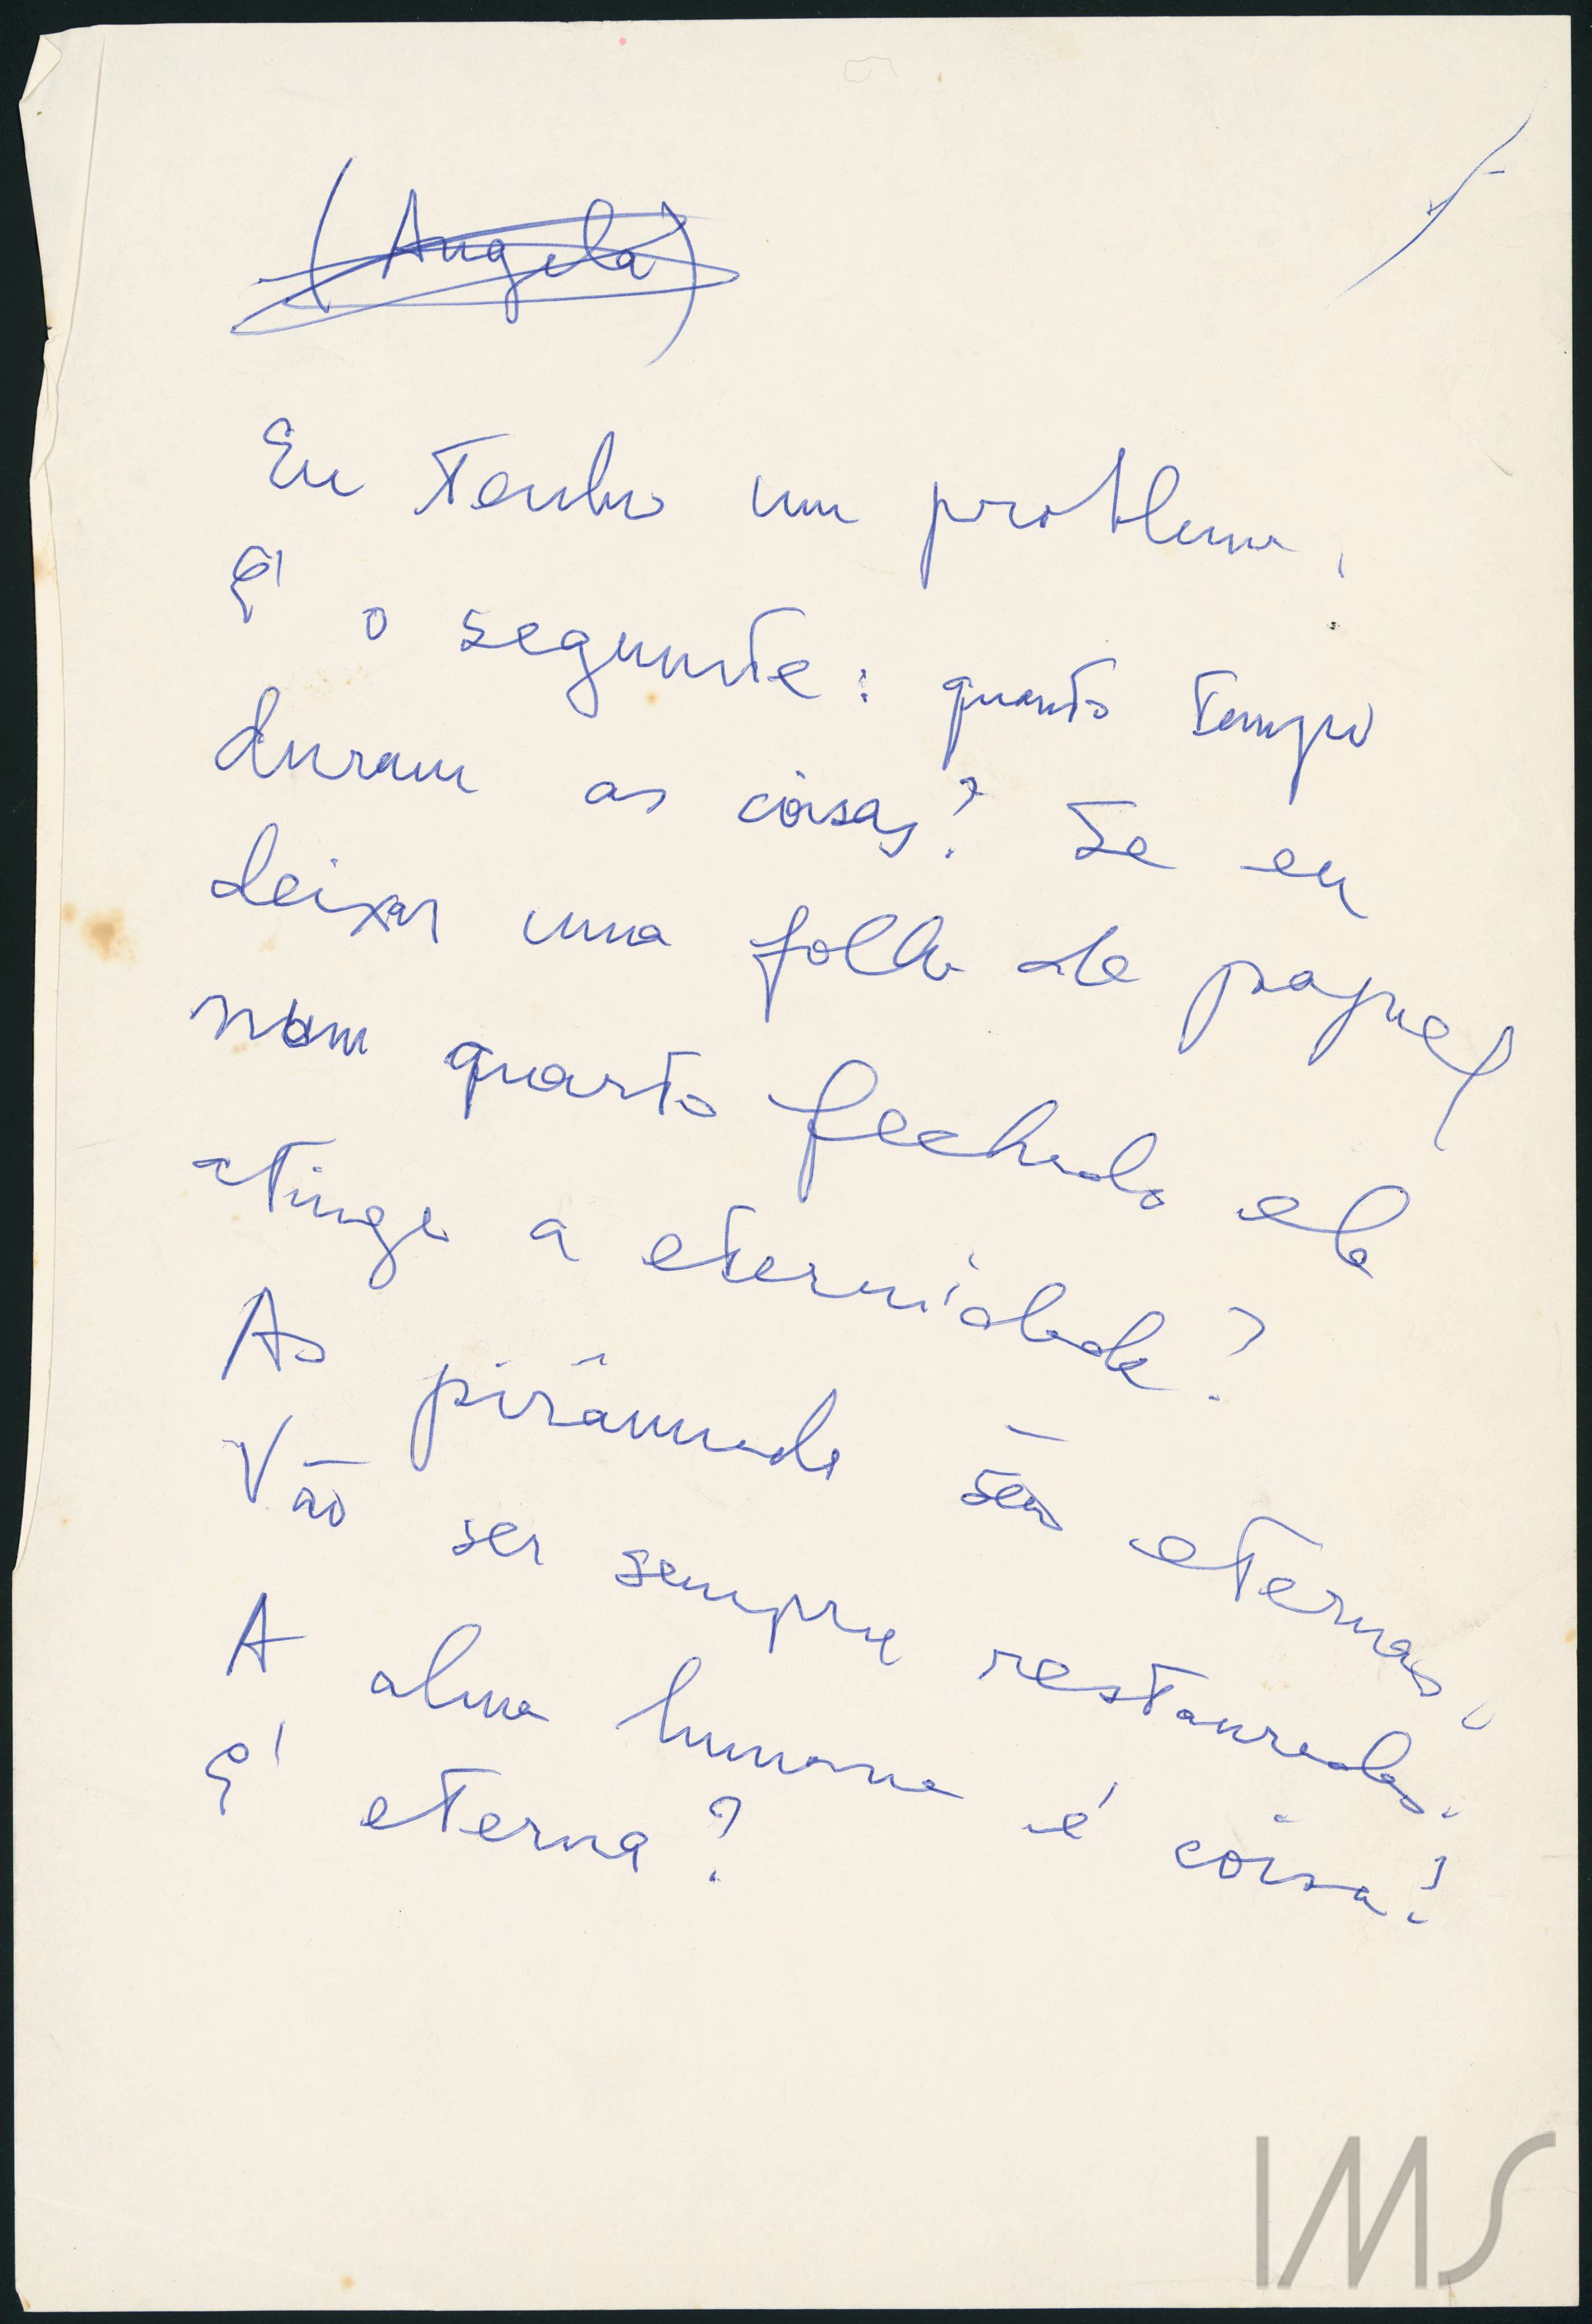 (Angela)
Eu tenho um problema.
É o seguinte: quanto tempo
duram as coisas? Se eu
deixar uma folha de papel
num quarto fechado ela
atinge a eternidade?
As pirâmides são eternas.
Vão ser sempre restauradas.
A alma humana é coisa?
É eterna?
IMS